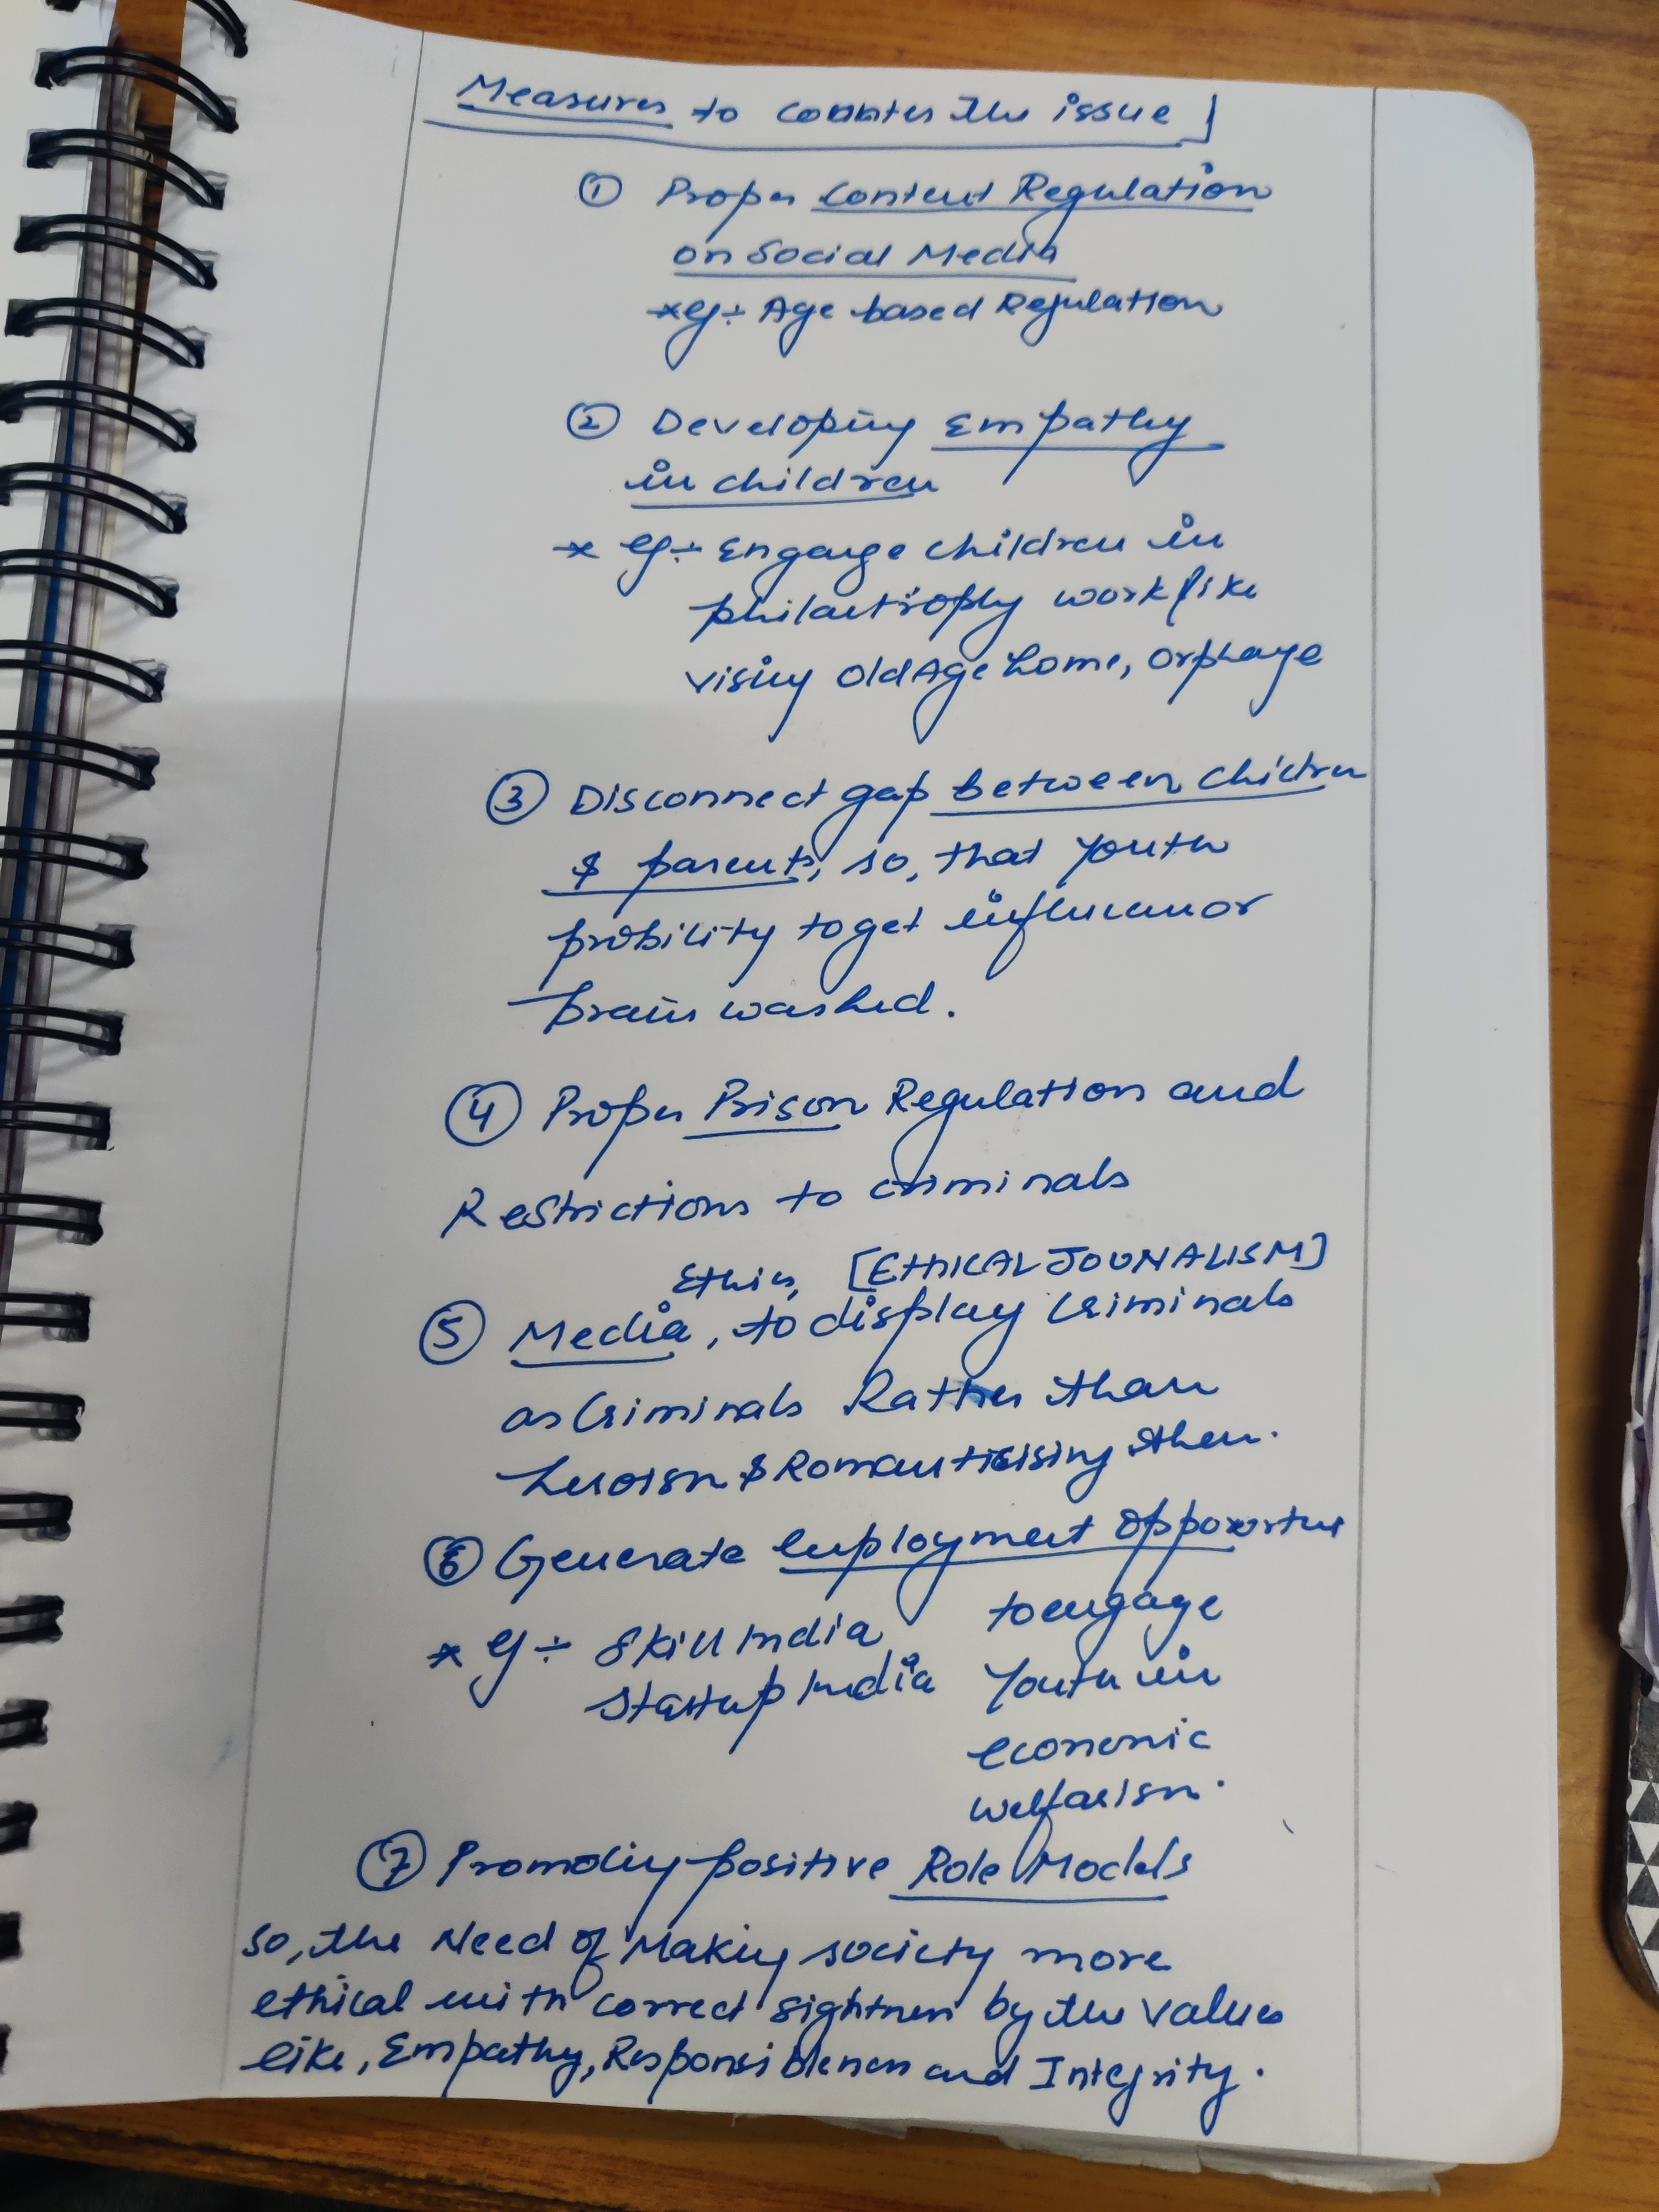 Measures to counter the issue
① Proper Content Regulation
on Social Media
* eg ÷ Age based Regulation
② Developing Empathy
in children
* eg ÷ Engauge children in
philantrophy work like
visiy old Age home, orphage
③ Disconnect gap between children
& parents, so, that youth
probility to get influence or
brain washed.
④ Proper Prison Regulation and
Restrictions to criminals
Ethics, [ETHICAL JOUNALISM]
⑤ Media, to display Criminals
as Criminals Rather than
heroism & Romanticising them.
⑥ Generate employment
to engage
* eg ÷ Skill India
Startup India youth in
economic
welfarism.
⑦ Promoting positive Role Models
So, the Need of Making society more
ethical with correct by the values
like, Empathy, and Integrity.